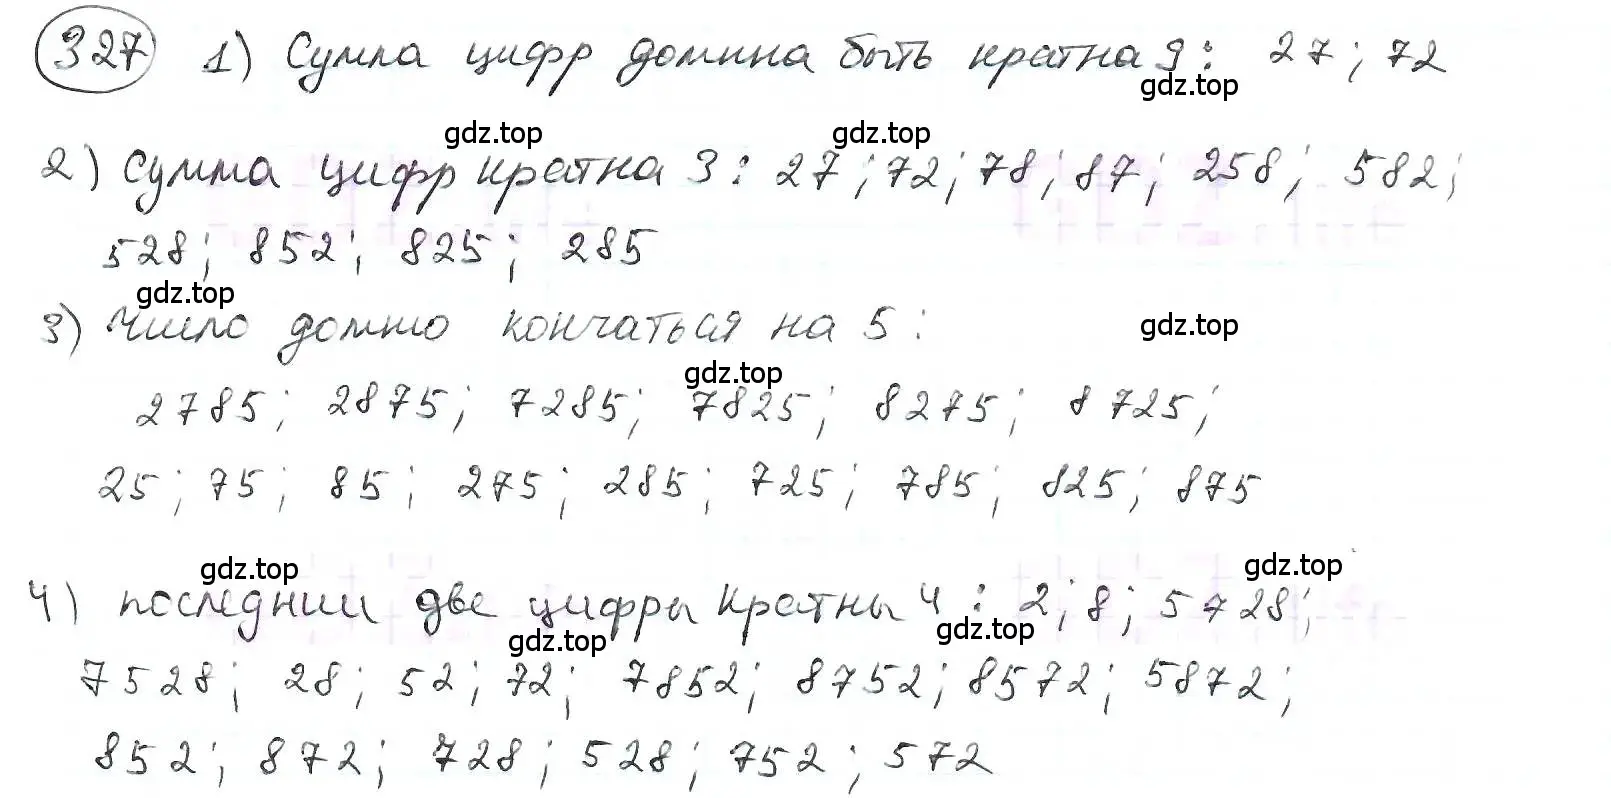 327 1) Сумма цифр должна быть кратна 9: 27; 72
gdz.top
gdz.top gdz.top
2) Сумма цифр кратна 3: 27; 72; 78; 87; 258; 582;
528; 852; 825; 285
gdz.top
3) Число должно кончаться на 5:
gdz.top
gdz.top
2785; 2875; 7285; 7825; 8275; 8725;
25; 75; 85; 275; 285; 725; 785; 825; 875
gdz.top gdz.top
4) последнии две цифры кратны 4: 2; 8; 5728;
gdz.top gdz.top
7528; 28; 52; 72; 7852; 8752; 8572; 5872;
852; 872; 728; 528; 752; 572